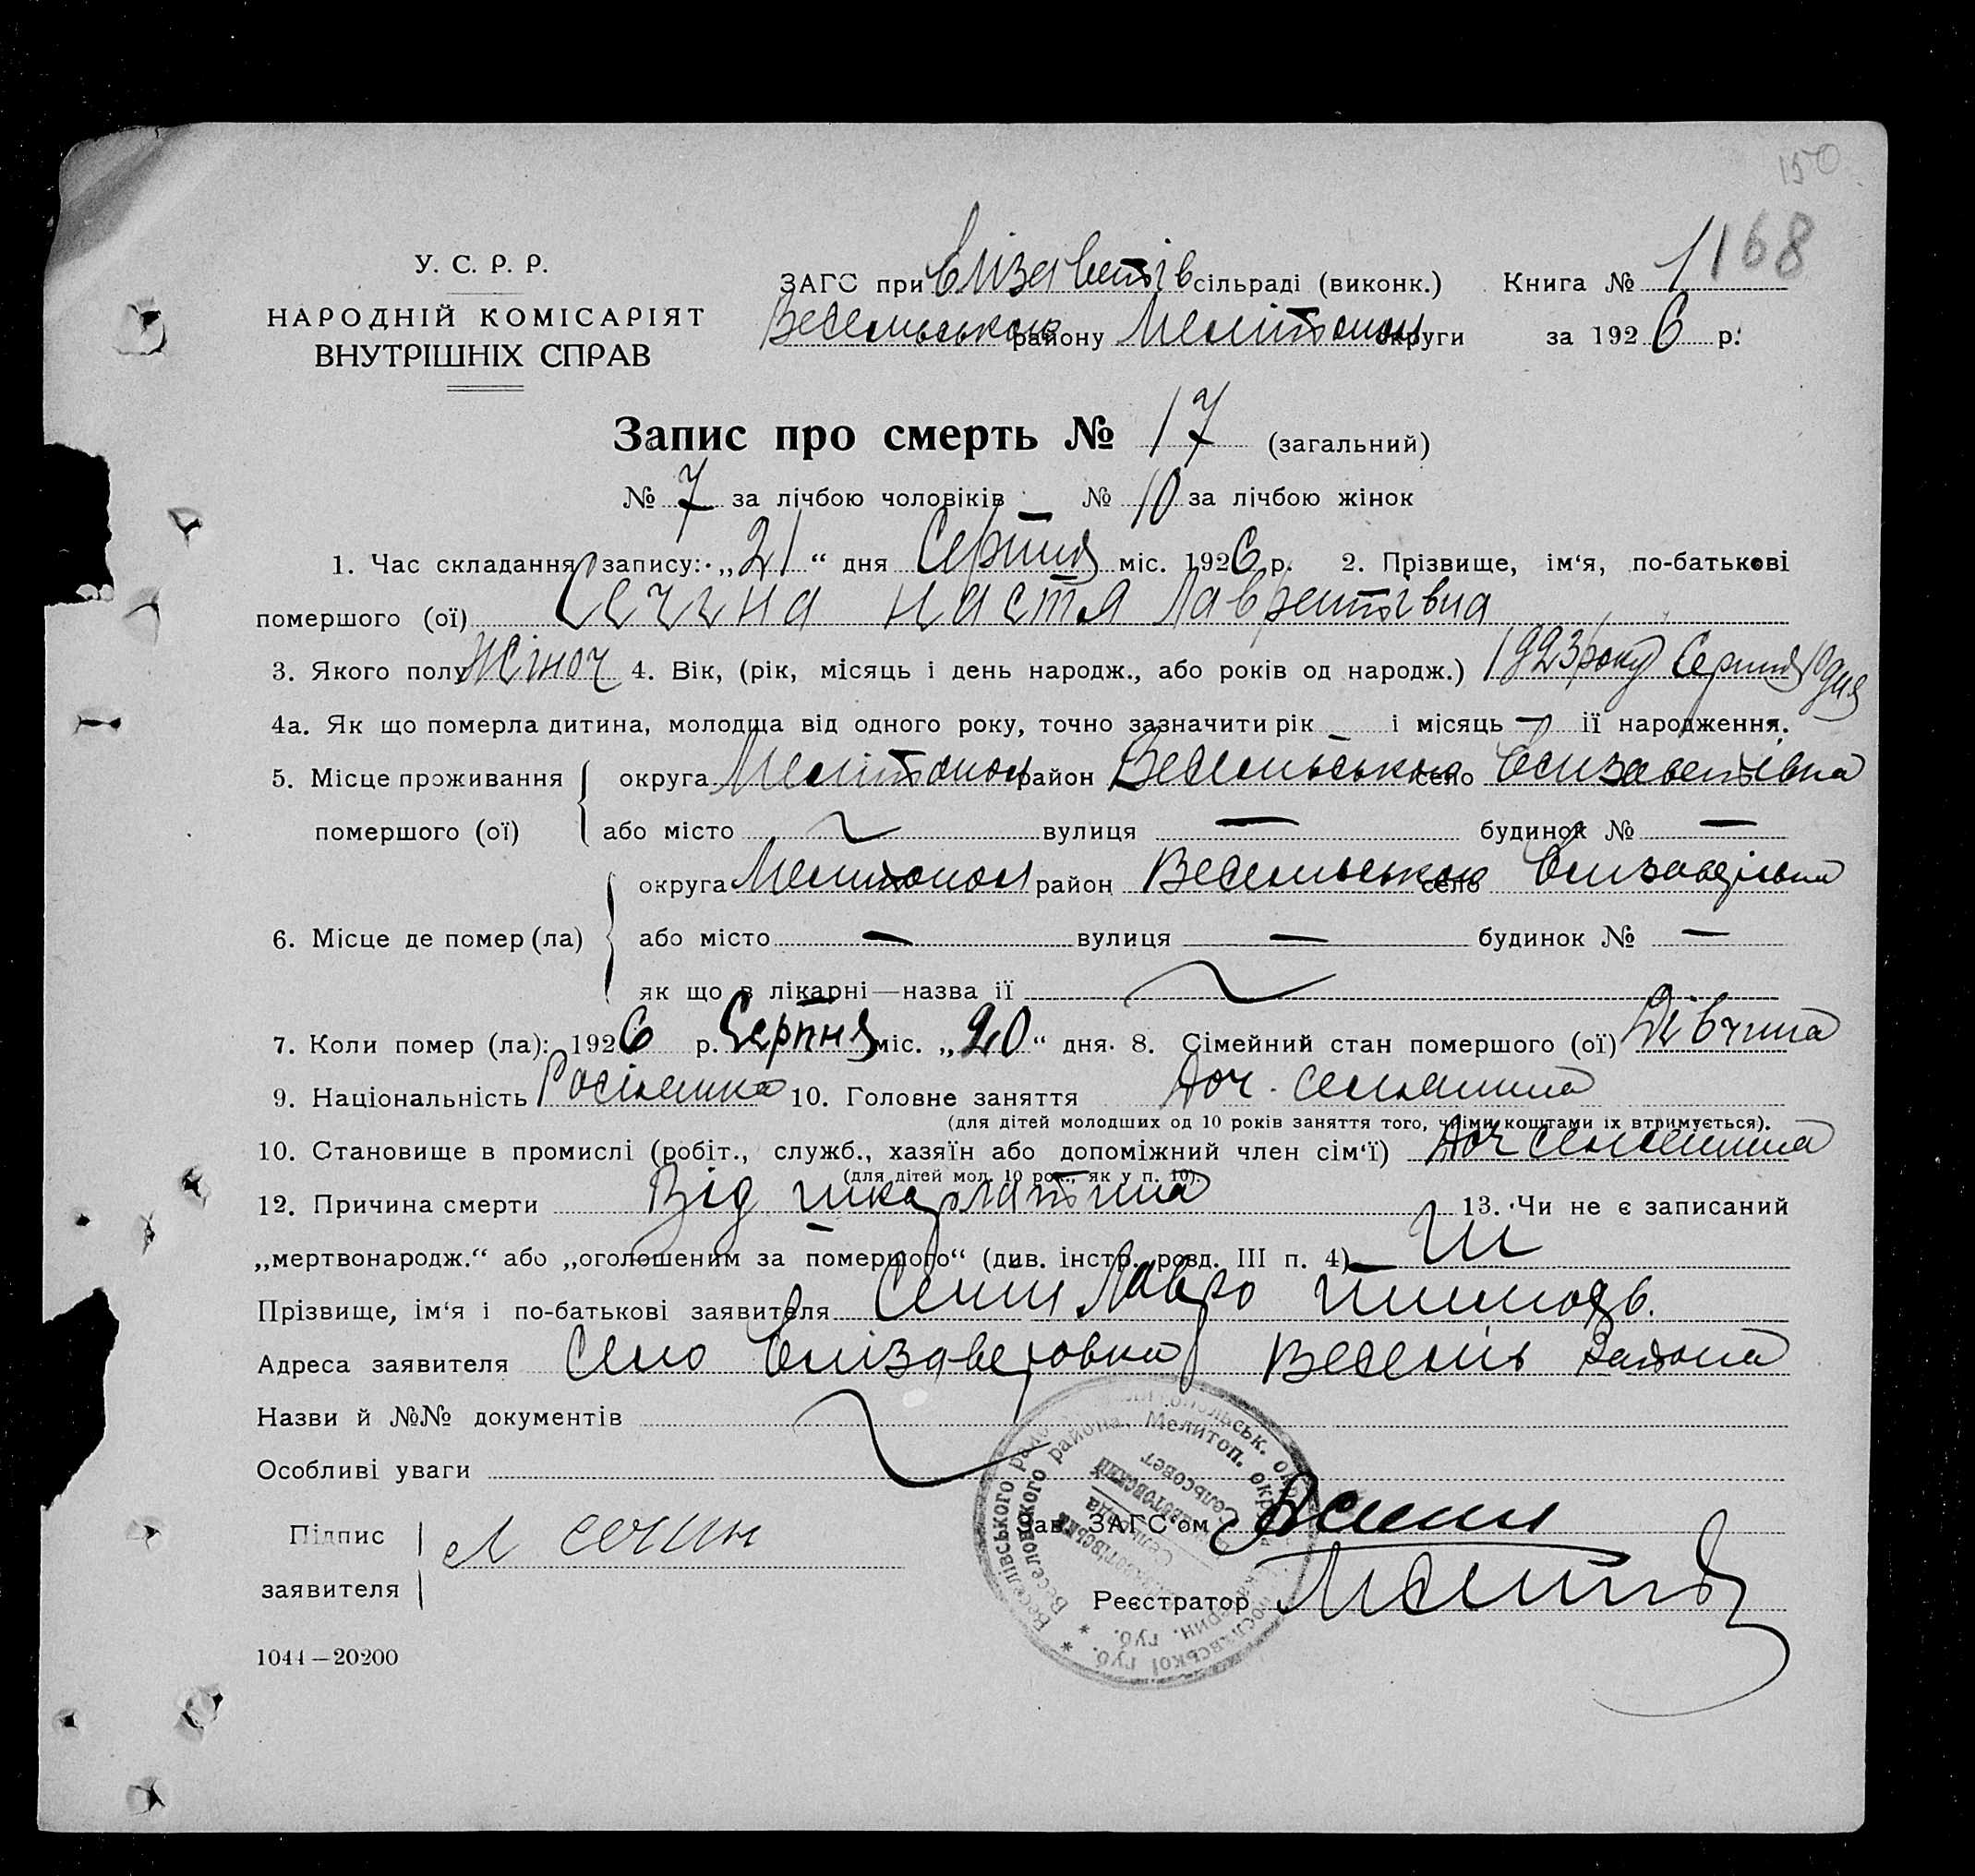 150
У. С. Р. Р.
НАРОДНІЙ КОМІСАРІЯТ
ВНУТРІШНІХ СПРАВ
ЗАГС при Єлізаветів сільраді (виконк.) Книга № 1 168
Весельського району Мелітопол округи за 1926 р.
Запис про смерть № 17 (загальний)
№ 7 за лічбою чоловіків № 10 за лічбою жінок
1. Час складання запису: „21“ дня Серпня міс. 1926 р. 2. Прізвище, ім‘я, по-батькові
помершого (ої) Сечина Настя Лаврентівна
3. Якого полу Жіноч 4. Вік, (рік, місяць і день народж., або років од народж.) 1923 року Серпня дня
4а. Як що померла дитина, молодща від одного року, точно зазначити рік — і місяць — ії народження.
5. Місце проживання округа Мелітопол район Весельського село Єлизаветівка
помершого (ої) або місто вулиця — будинок № —
округа Мелитопол район Весельського село
6. Місце де помер (ла) або місто — вулиця — будинок № —
як що в лікарні—назва ії
7. Коли помер (ла): 1926 р. Серпня міс. „20“ дня. 8. Сімейний стан помершого (ої) Дівчина
9. Національність Росіянка 10. Головне заняття Доч. селянина
(для дітей молодших од 10 років заняття того, чиїми коштами іх втримується).
10. Становище в промислі (робіт., служб., хазяїн або допоміжний член сім‘ї) Доч селянина
(для дітей мол. 10 рок., як у п. 10).
12. Причина смерти Від шкарлатина 13. Чи не є записаний
„мертвонародж.“ або „оголошеним за помершого“ (див. інстр. розд. III п. 4) Ні
Прізвище, ім‘я і по-батькові заявителя Сечин Лавро
Адреса заявителя Село Єлізаветовка Весель района
Назви й №№ документів
Особливі уваги
Підпис
заявителя Л Сечин
Зав. ЗАГС‘ом
Реєстратор
Веселівського Мелітопольськ. окр. Катеринославської губ.
Веселовского района, Мелитоп. окр. Екатерин. губ.
Сельсовет
1044—20200